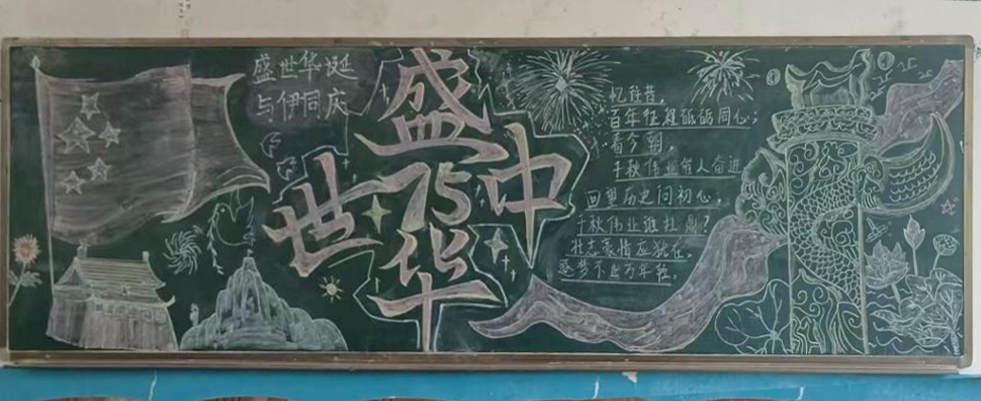 盛世华诞
与伊同庆
盛
世75中
华
忆往昔,
百年征程砥砺同心;
看今朝,
千秋伟业催人奋进
回望历史问初心,
千秋伟业谁担忧?
壮志豪情应犹在,
逐梦不止万年轻